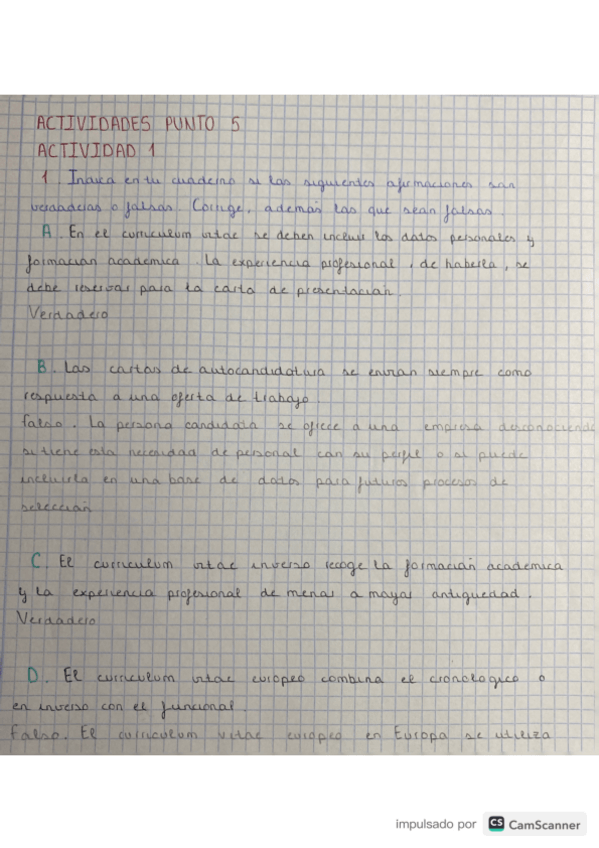 ACTIVIDADES PUNTO 5
ACTIVIDAD 1
1. Indica en tu cuaderno si las siguientes afirmaciones son
verdaderas o falsas. Corrige, además las que sean falsas.
A. En el curriculum vitae se deben incluir los datos personales y
formación académica. La experiencia profesional, de haberla, se
debe reservar para la carta de presentación.
Verdadero
B. Las cartas de autocandidatura se envian siempre como
respuesta a una oferta de trabajo.
falso. La persona candidata se ofrece a una empresa desconociendo
si tiene esta necesidad de personal con su perfil o si puede
incluirla en una base de datos para futuros procesos de
selección
C. El curriculum vitae inverso recoge la formación academica
y la experiencia profesional de menos a mayor antiguedad.
Verdadero
D. El curriculum vitae europeo combina el cronologico o
en inverso con el funcional.
Falso. El curriculum vitae europeo en Europa se utiliza
impulsado por CS CamScanner